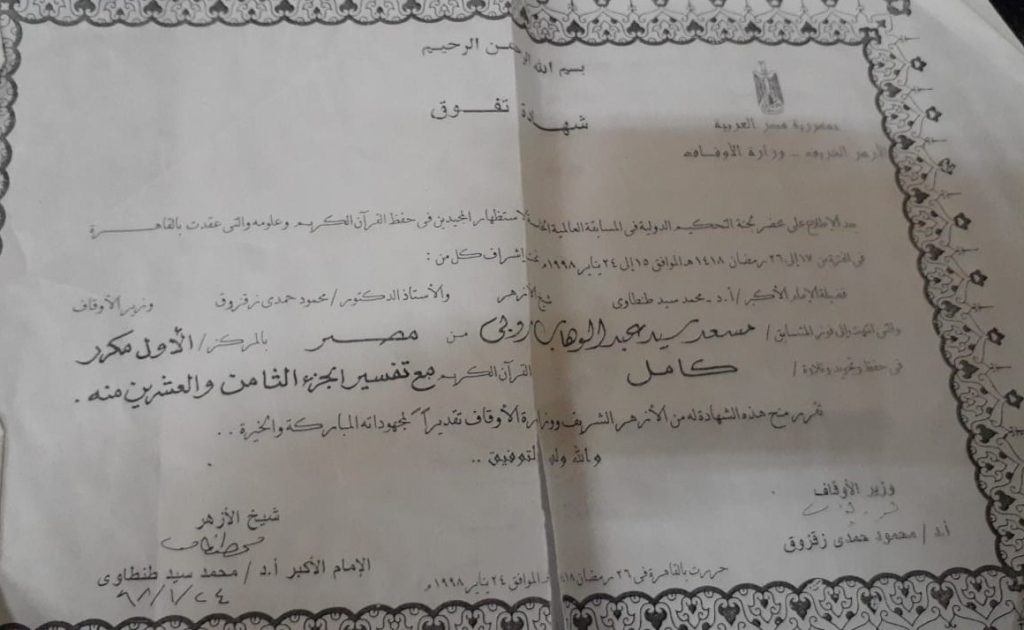 بسم الله الرحمن الرحيم
شهادة تفوق
جمهورية مصر العربية
الأزهر الشريف - وزارة الأوقاف
بعد الإطلاع على محضر لجنة التحكيم الدولية فى المسابقة العالمية لاستظهار المجيدين فى حفظ القرآن الكريم وعلومه والتى عقدت بالقاهرة
فى الفترة من ١٧ إلى ٢٦ رمضان ١٤١٨ هـ الموافق ١٥ إلى ٢٤ يناير ١٩٩٨م تحت إشراف كل من :
فضيلة الإمام الأكبر / أ.د - محمد سيد طنطاوى شيخ الأزهر والأستاذ الدكتور / محمود حمدى زقزوق وزير الأوقاف
والتى انتهت إلى فوز المتسابق / مسعد سيد عبد الوهاب من مصر بالمركز / الأول مكرر
فى حفظ وتجويد وتلاوة / كامل القرآن الكريم مع تفسير الجزء الثامن والعشرين منه .
تقرر منح هذه الشهادة له من الأزهر الشريف ووزارة الأوقاف تقديراً لمجهوداته المباركة والخيرة ..
والله ولى التوفيق ..
وزير الأوقاف
أ.د / محمود حمدى زقزوق
شيخ الأزهر
الإمام الأكبر أ.د / محمد سيد طنطاوى
٩٨/١/٢٤
حررت بالقاهرة فى ٢٦ رمضان ١٤١٨ هـ الموافق ٢٤ يناير ١٩٩٨م